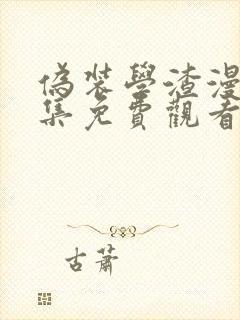 偽裝學渣漫
集免費觀看
古蕭